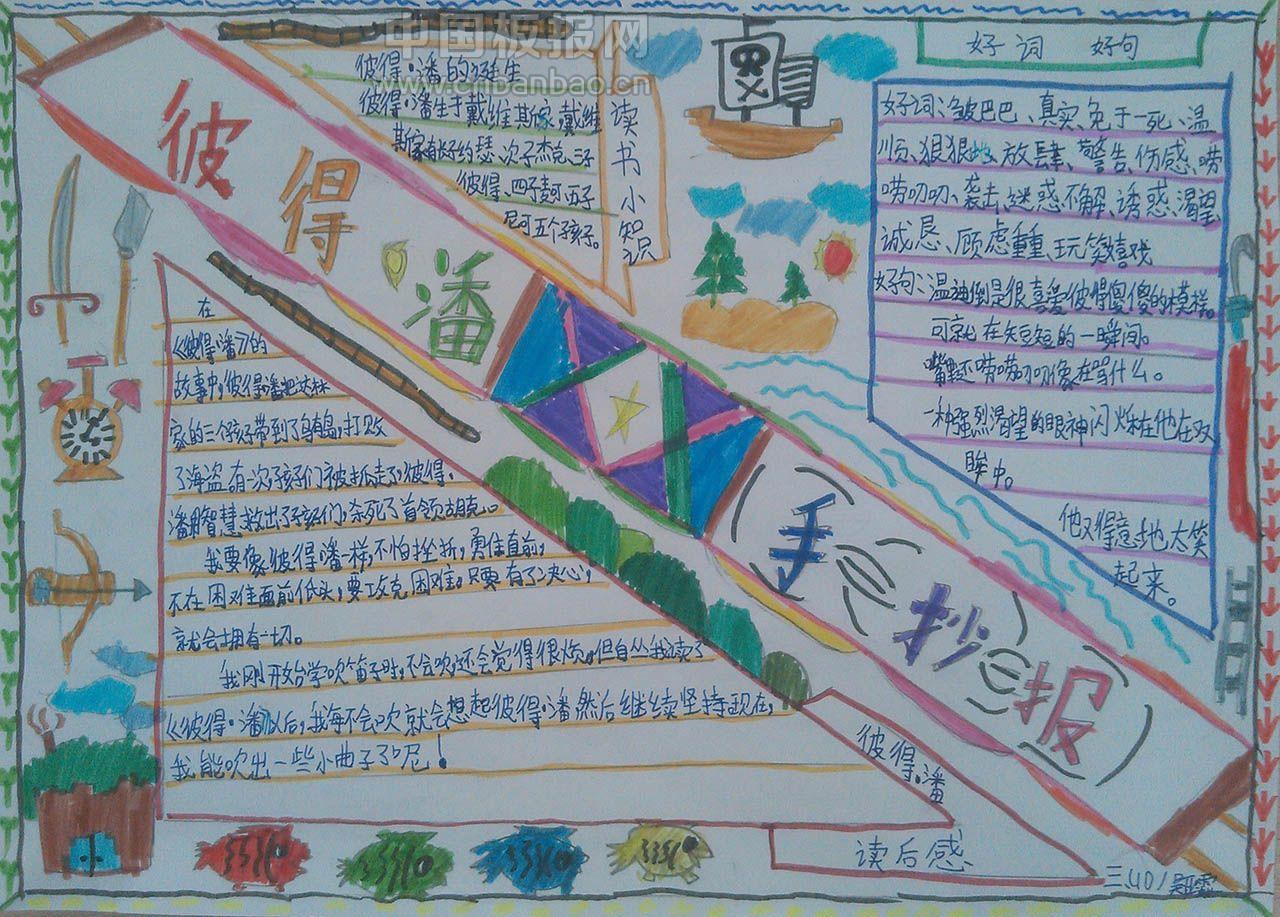 中国板报网
www.cnbanbao.cn
彼得·潘
手抄报
读书小知识
彼得·潘的诞生
彼得·潘生于戴维斯家,戴维
斯家有长子约瑟、次子杰克、三子
彼得、四子
尼可五个孩子。
好词 好句
好词:皱巴巴、真实、免于一死、温
顺、狠狠地、放肆、警告、伤感、唠
唠叨叨、袭击、迷惑不解、诱惑、渴望、
诚恳、顾虑重重、玩笑嬉戏
好句:温迪倒是很喜爱彼得傻傻的模样。
可就在短短的一瞬间。
嘴里还唠唠叨叨像在骂什么。
一种强烈渴望的眼神闪烁在他在双
眸中。
他又得意地大笑
起来。
在
《彼得·潘》的
故事中,彼得·潘把达林
家的三个孩子带到了乌有岛,打败
了海盗。有一次子孩子们被抓走了,彼得·
潘用智慧救出了孩子们,杀死了首领胡克。
我要像彼得·潘一样,不怕挫折,勇往直前,
不在困难面前低头,要攻克困难。只要有了决心,
就会拥有一切。
我刚开始学吹笛子时,不会吹,还会觉得很烦。但自从我读了
《彼得·潘》以后,我每不会吹就会想起彼得·潘然后继续坚持,现在,
我能吹出一些小曲子了呢!
彼得·潘
读后感